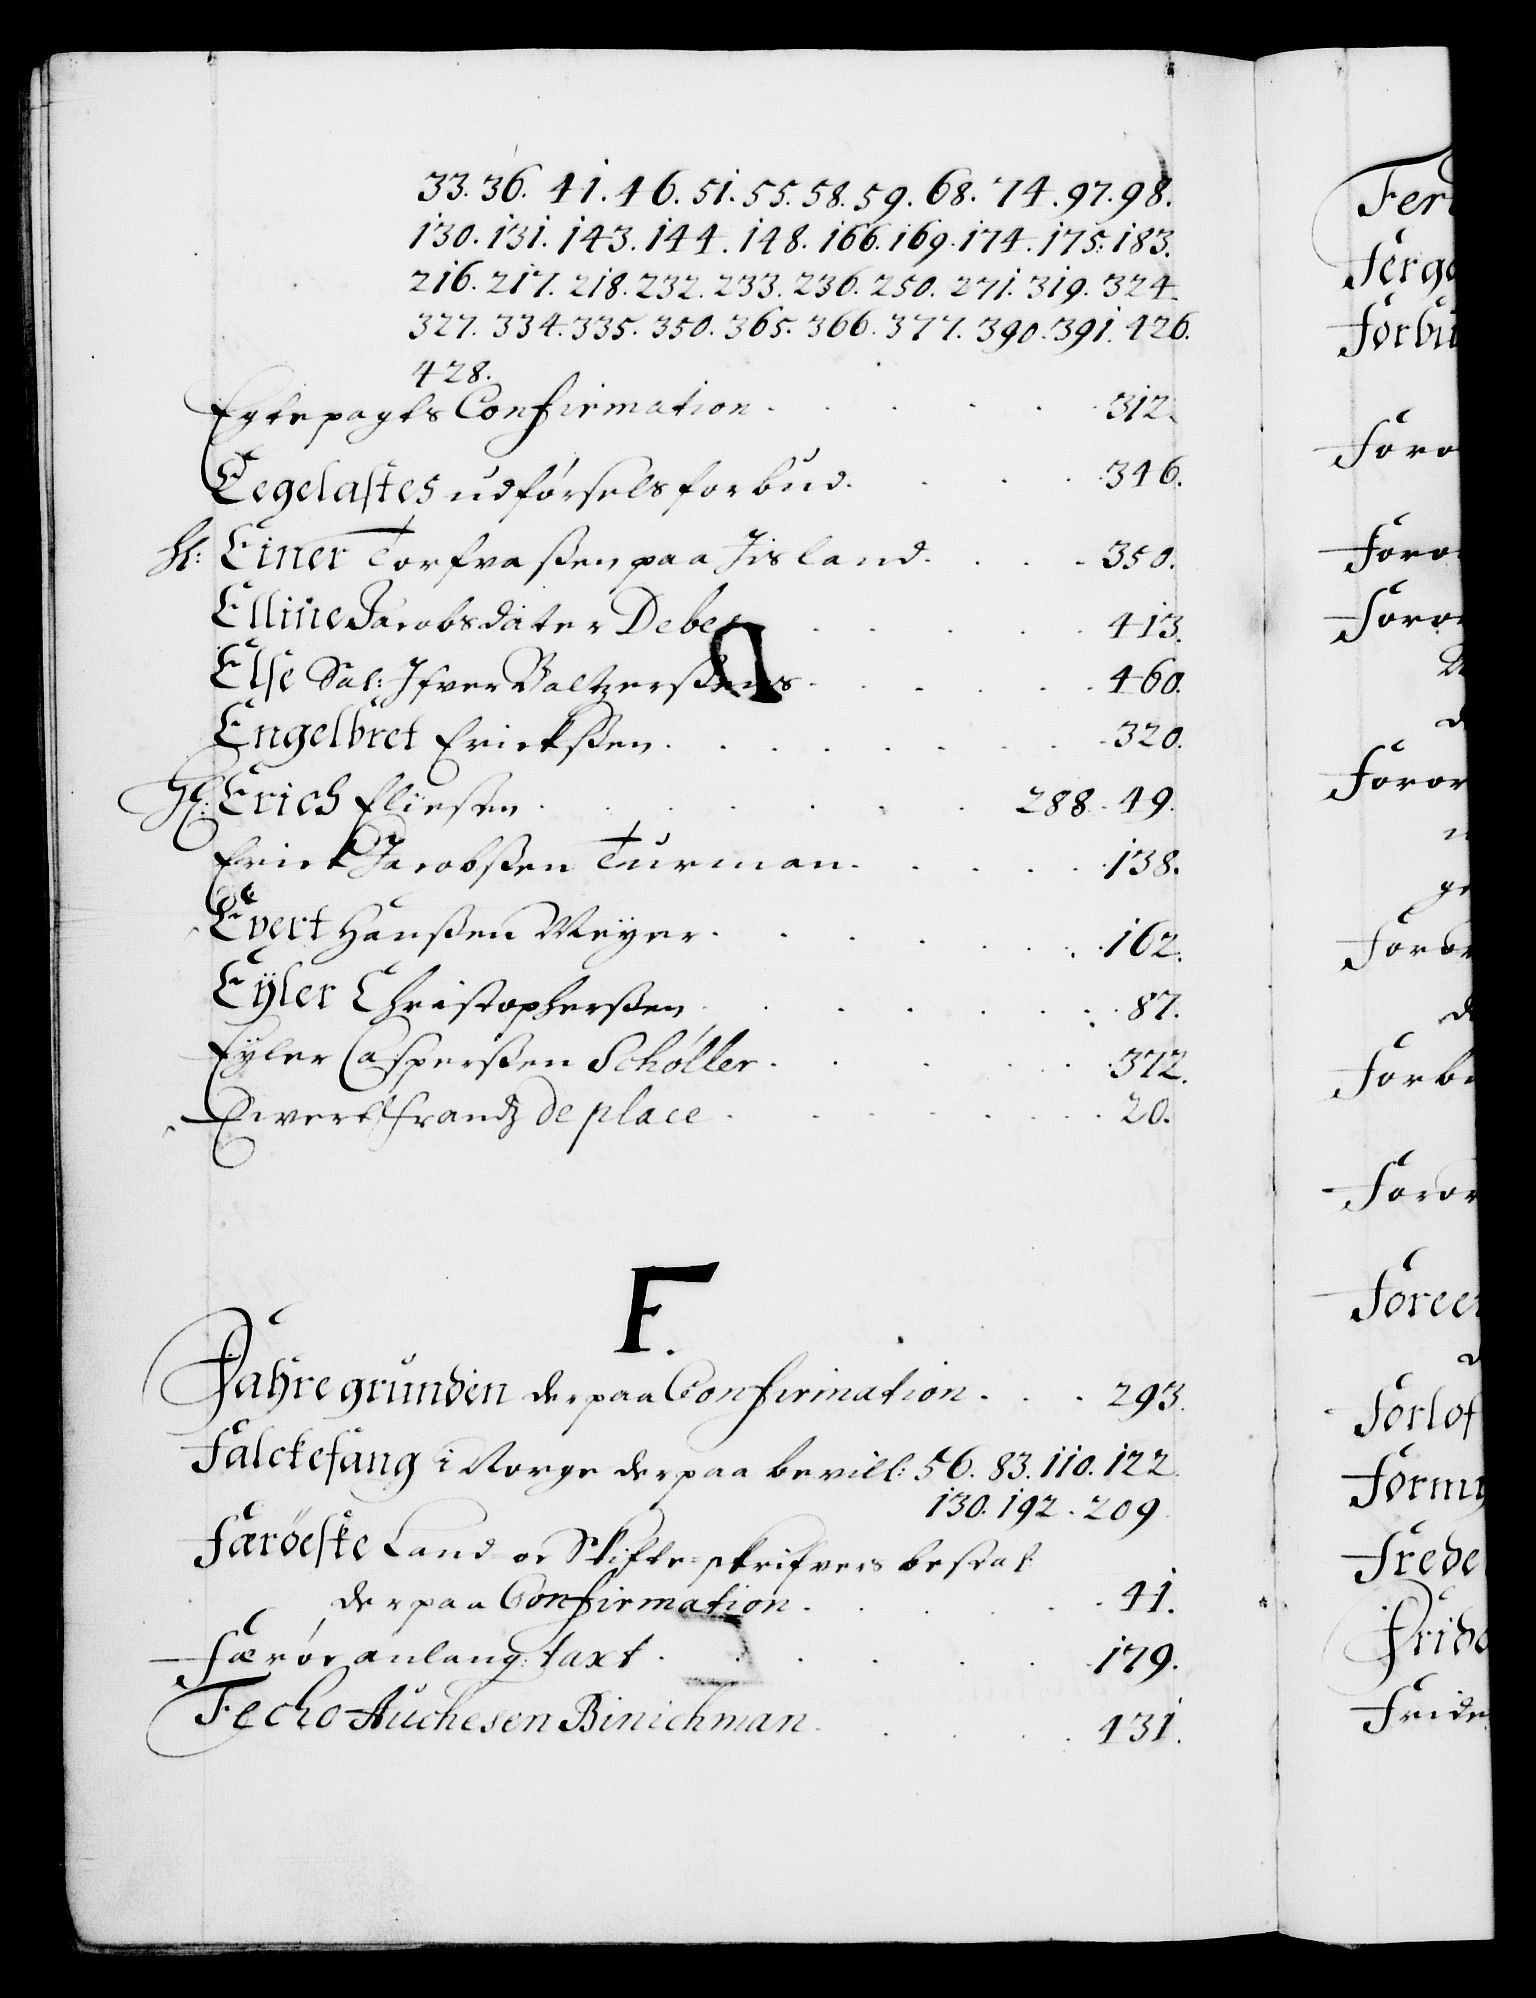 33. 36. 41. 46. 51. 55. 58. 59. 68. 74. 97. 98.
130. 131. 143. 144. 148. 166. 169. 174. 175. 183.
216. 217. 218. 232. 233. 236. 250. 271. 319. 324.
327. 334. 335. 350. 365. 366. 377. 390. 391. 426.
428.
Egtepagts Confirmation . . . . . 312.
Eegelastes udførsels forbud . . . . 346.
Hr: Einer Torfvaßen paa Jisland . . . 350.
Elline Jacobsdater Debes . . . . . 413.
Else Sal: Ifver Baltzerßens . . . . . 460.
Engelbret Erickßen . . . . . . 320.
Hr: Erich Eliesen . . . . . . 288. 49.
Erick Jacobßen Turman . . . . . 138.
Evert Hanßen Meyer . . . . . . 162.
Eÿler Christopherßen . . . . . . 87.
Eÿler Casperßen Schøller . . . . . 372.
Ewert frandz de place . . . . . . 20.
F.
Fahre grunden derpaa Confirmation . . . 293.
Falckefang i Norge derpaa bevill: 56. 83. 110. 122.
130. 192. 209
Færöeske Land oc Skifte-skrifvers bestal:
derpaa Confirmation . . . . . 41.
Færøe anlang: taxt . . . . . . 179.
Fecho Auchesen Binichman . . . . 431.
Fer
Ferge
Forbu
Foror
Foror
Foror
d
Foror
ge
Foror
d
Forbu
Foror
Foree
Forlof
Formy
Frede
Frid
Fride